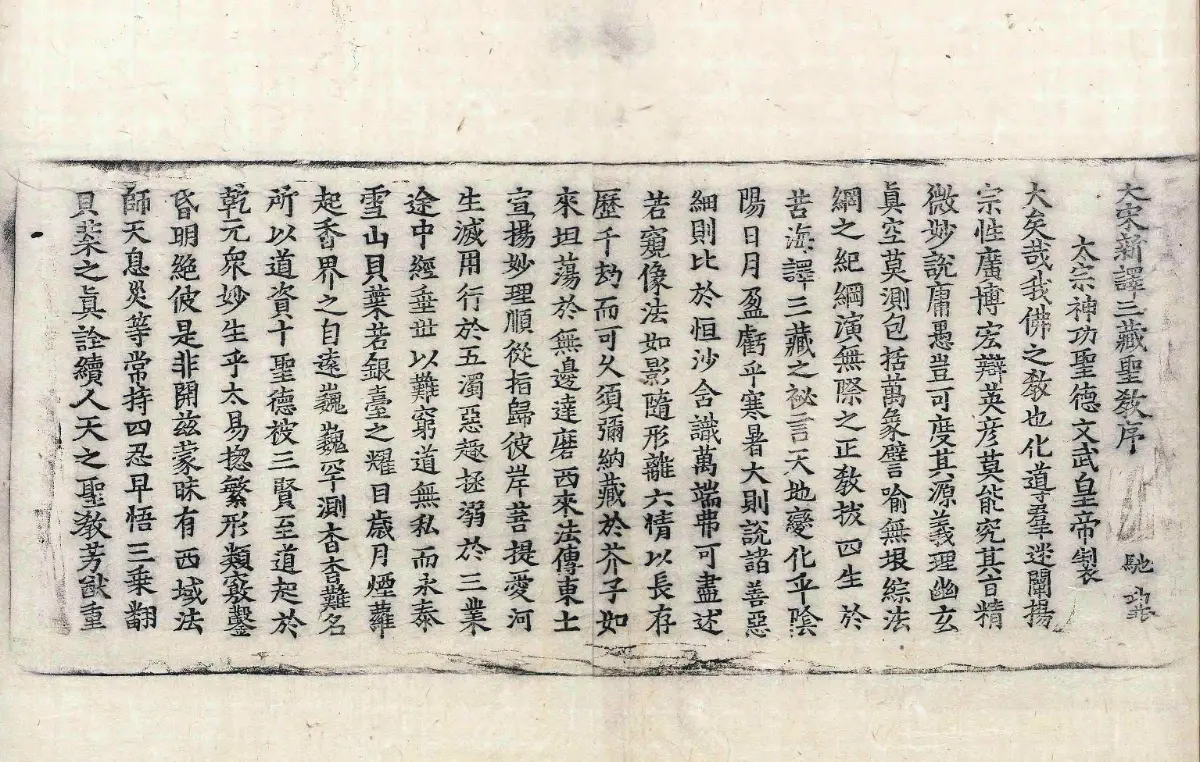 大宋新譯三藏聖敎序 馳
太宗神功聖德文武皇帝製
大矣哉我佛之敎也化導羣迷闡揚
宗性廣博宏辯英彦莫能究其旨精
微妙說庸愚豈可度其源義理幽玄
眞空莫測包括萬象譬喻無垠綜法
網之紀綱演無際之正敎拔四生於
苦海譯三藏之祕言天地變化乎陰
陽日月盈虧乎寒暑大則說諸善惡
細則比於恒沙含識萬端弗可盡述
若窺像法如影隨形離六情以長存
歷千劫而可久須彌納藏於芥子如
來坦蕩於無邊達磨西來法傳東土
宣揚妙理順從指歸彼岸菩提愛河
生滅用行於五濁惡趣拯溺於三業
途中經垂世以難窮道無私而永泰
雪山貝葉若銀臺之耀目歲月煙蘿
起香界之自遠巍巍罕測杳杳難名
所以道資十聖德被三賢至道起於
乾元衆妙生乎太易揔繁形類竅鑿
昏明絕彼是非開兹蒙昧有西域法
師天息災等常持四忍早悟三乘翻
貝葉之眞詮續人天之聖敎芳猷重